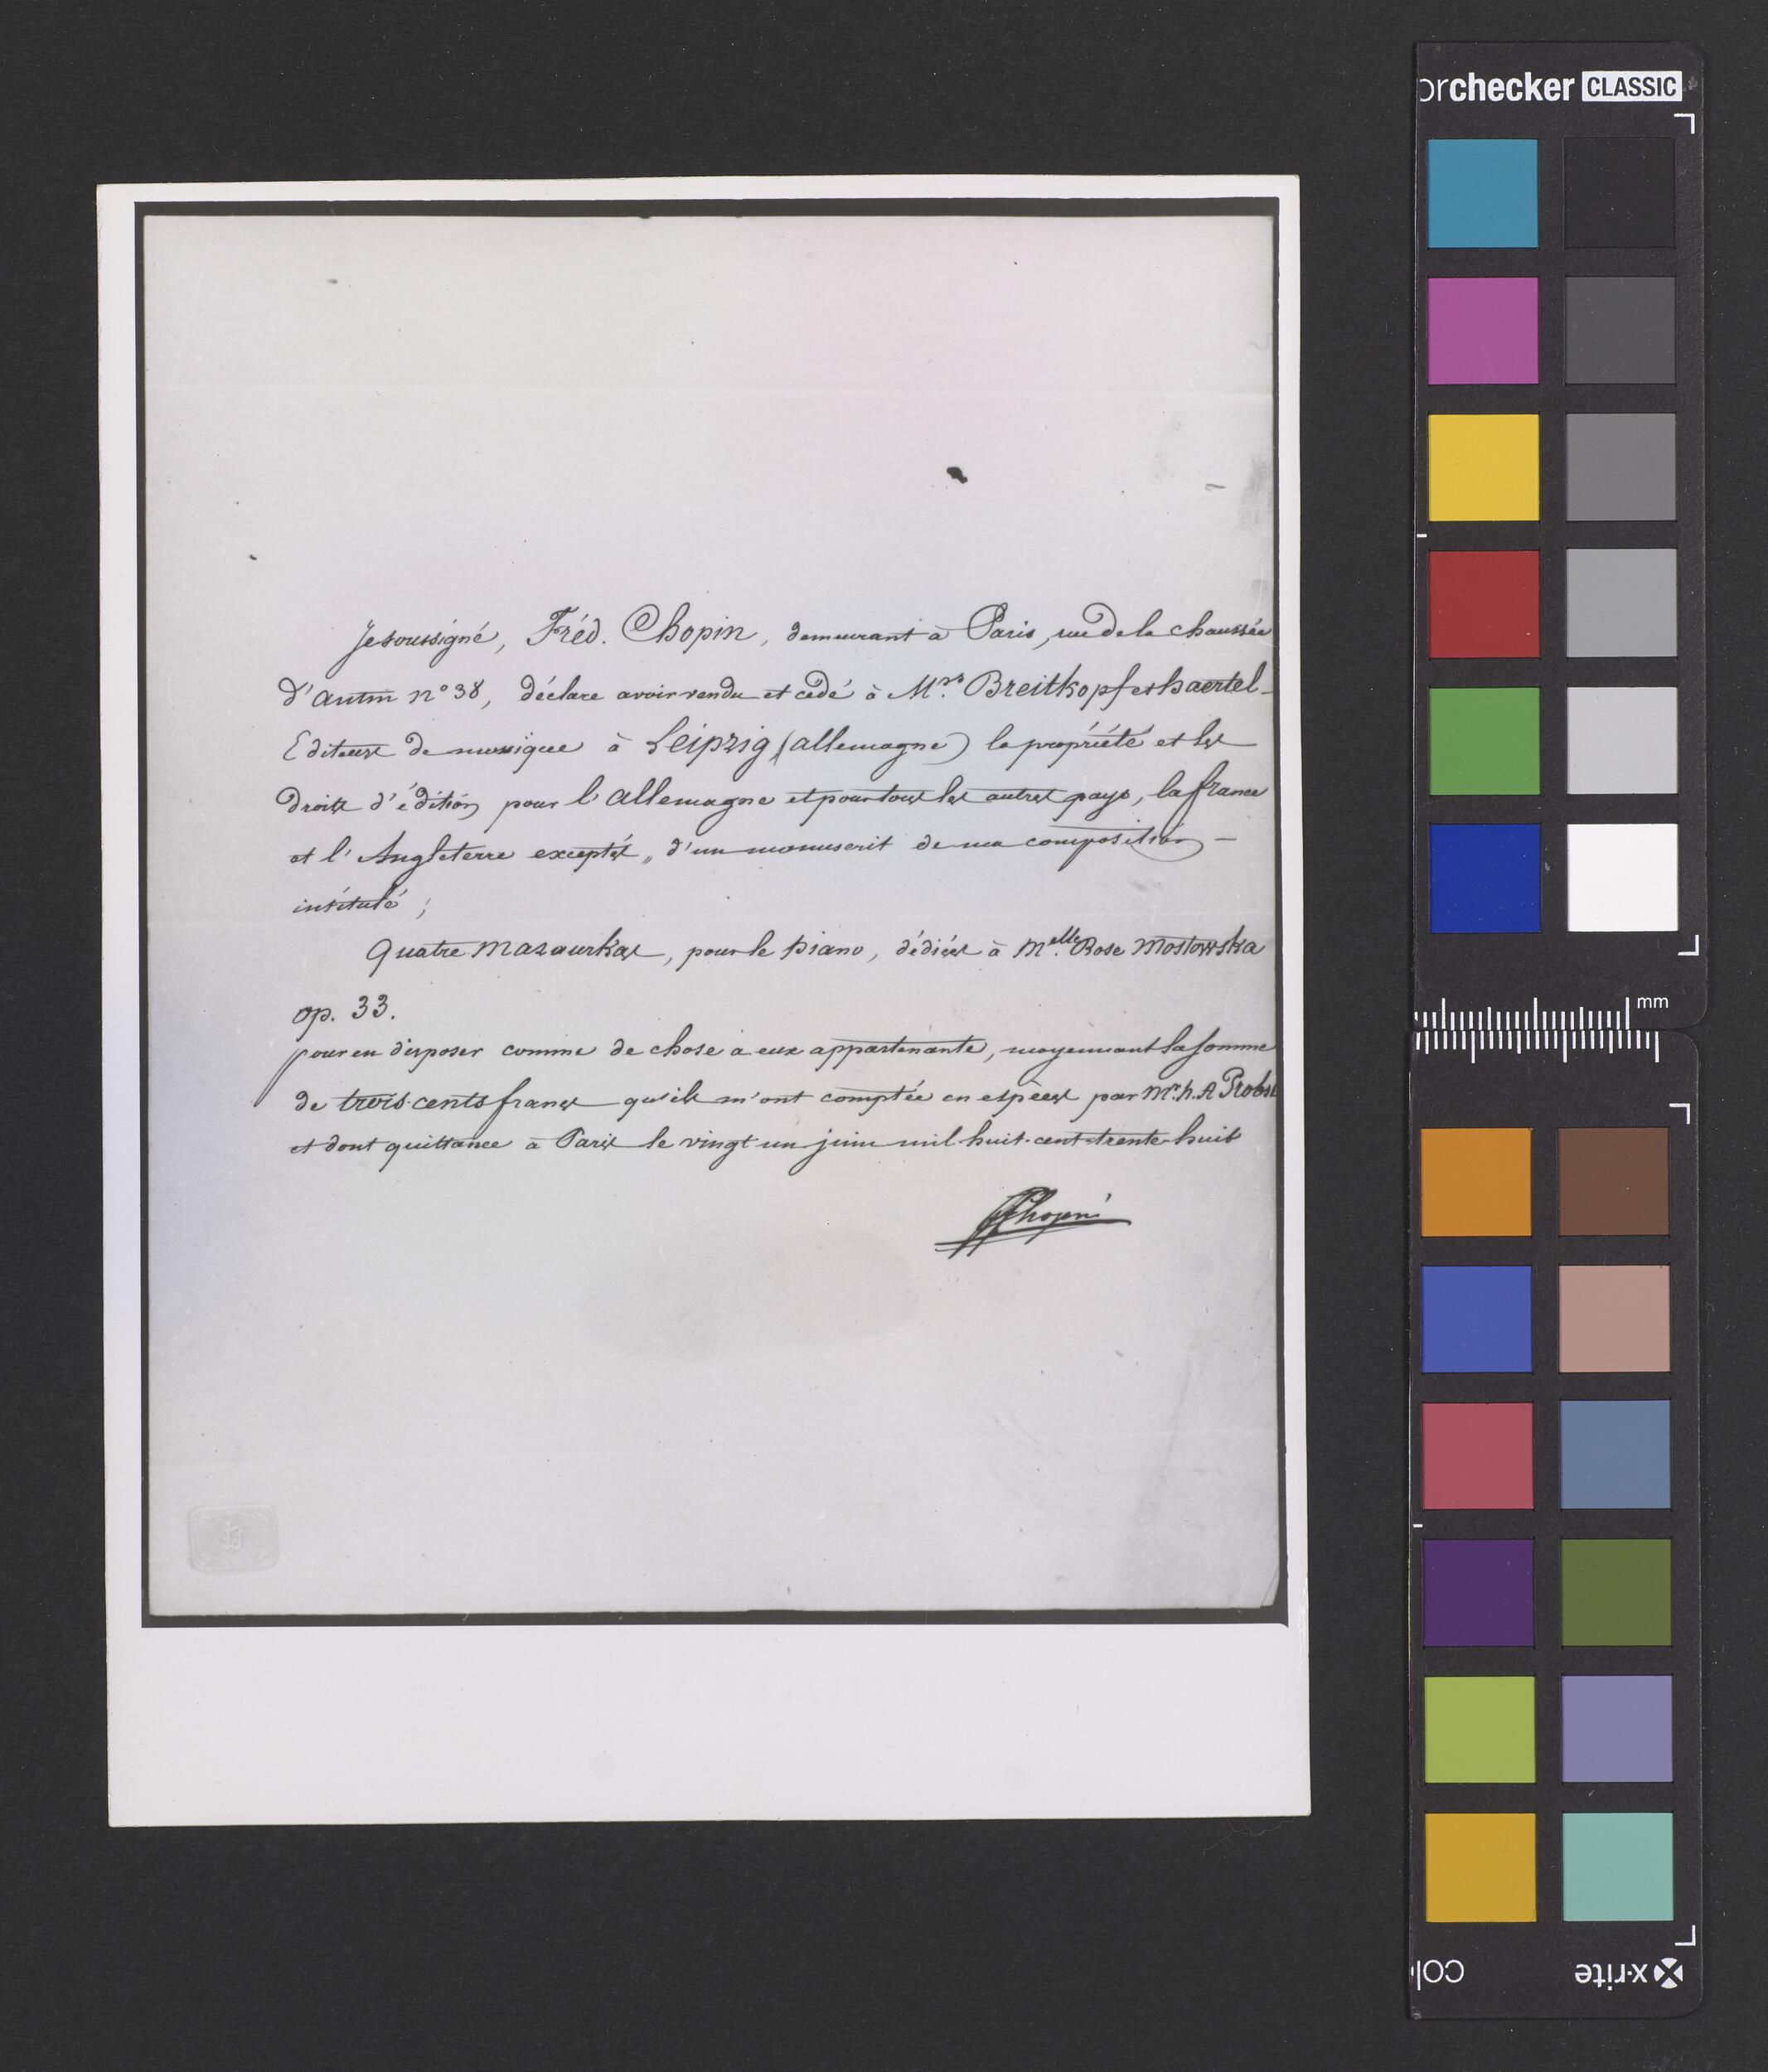 Je soussigné, Fréd. Chopin, demeurant à Paris, rue de la chaussée
d'antin n° 38, déclare avoir vendu et cédé à M.rs Breitkopf et haertel
Editeurs de musique à Leipzig (allemagne) la propriété et les
droits d'édition pour l'allemagne et pour tous les autres pays, la france
et l'Angleterre exceptés „ d'un manuscrit de ma composition —
intitulé ;
Quatre Mazourkas, pour le piano, dédiées à M.elle Rose Mostowska
op. 33.
pour en disposer comme de chose à eux appartenante, moyennant la somme
de trois-cents francs qu'ils m'ont comptée en espèces par Mr. h. A Probst
et dont quittance à Paris le vingt-un juin mil-huit-cent-trente-huit
FChopin
orchecker CLASSIC
mm
x-rite
col